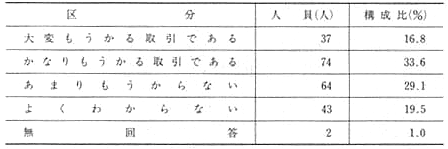 区分 人員(人) 構成比(%)
大変もうかる取引である 37 16.8
かなりもうかる取引である 74 33.6
あまりもうからない 64 29.1
よくわからない 43 19.5
無回答 2 1.0